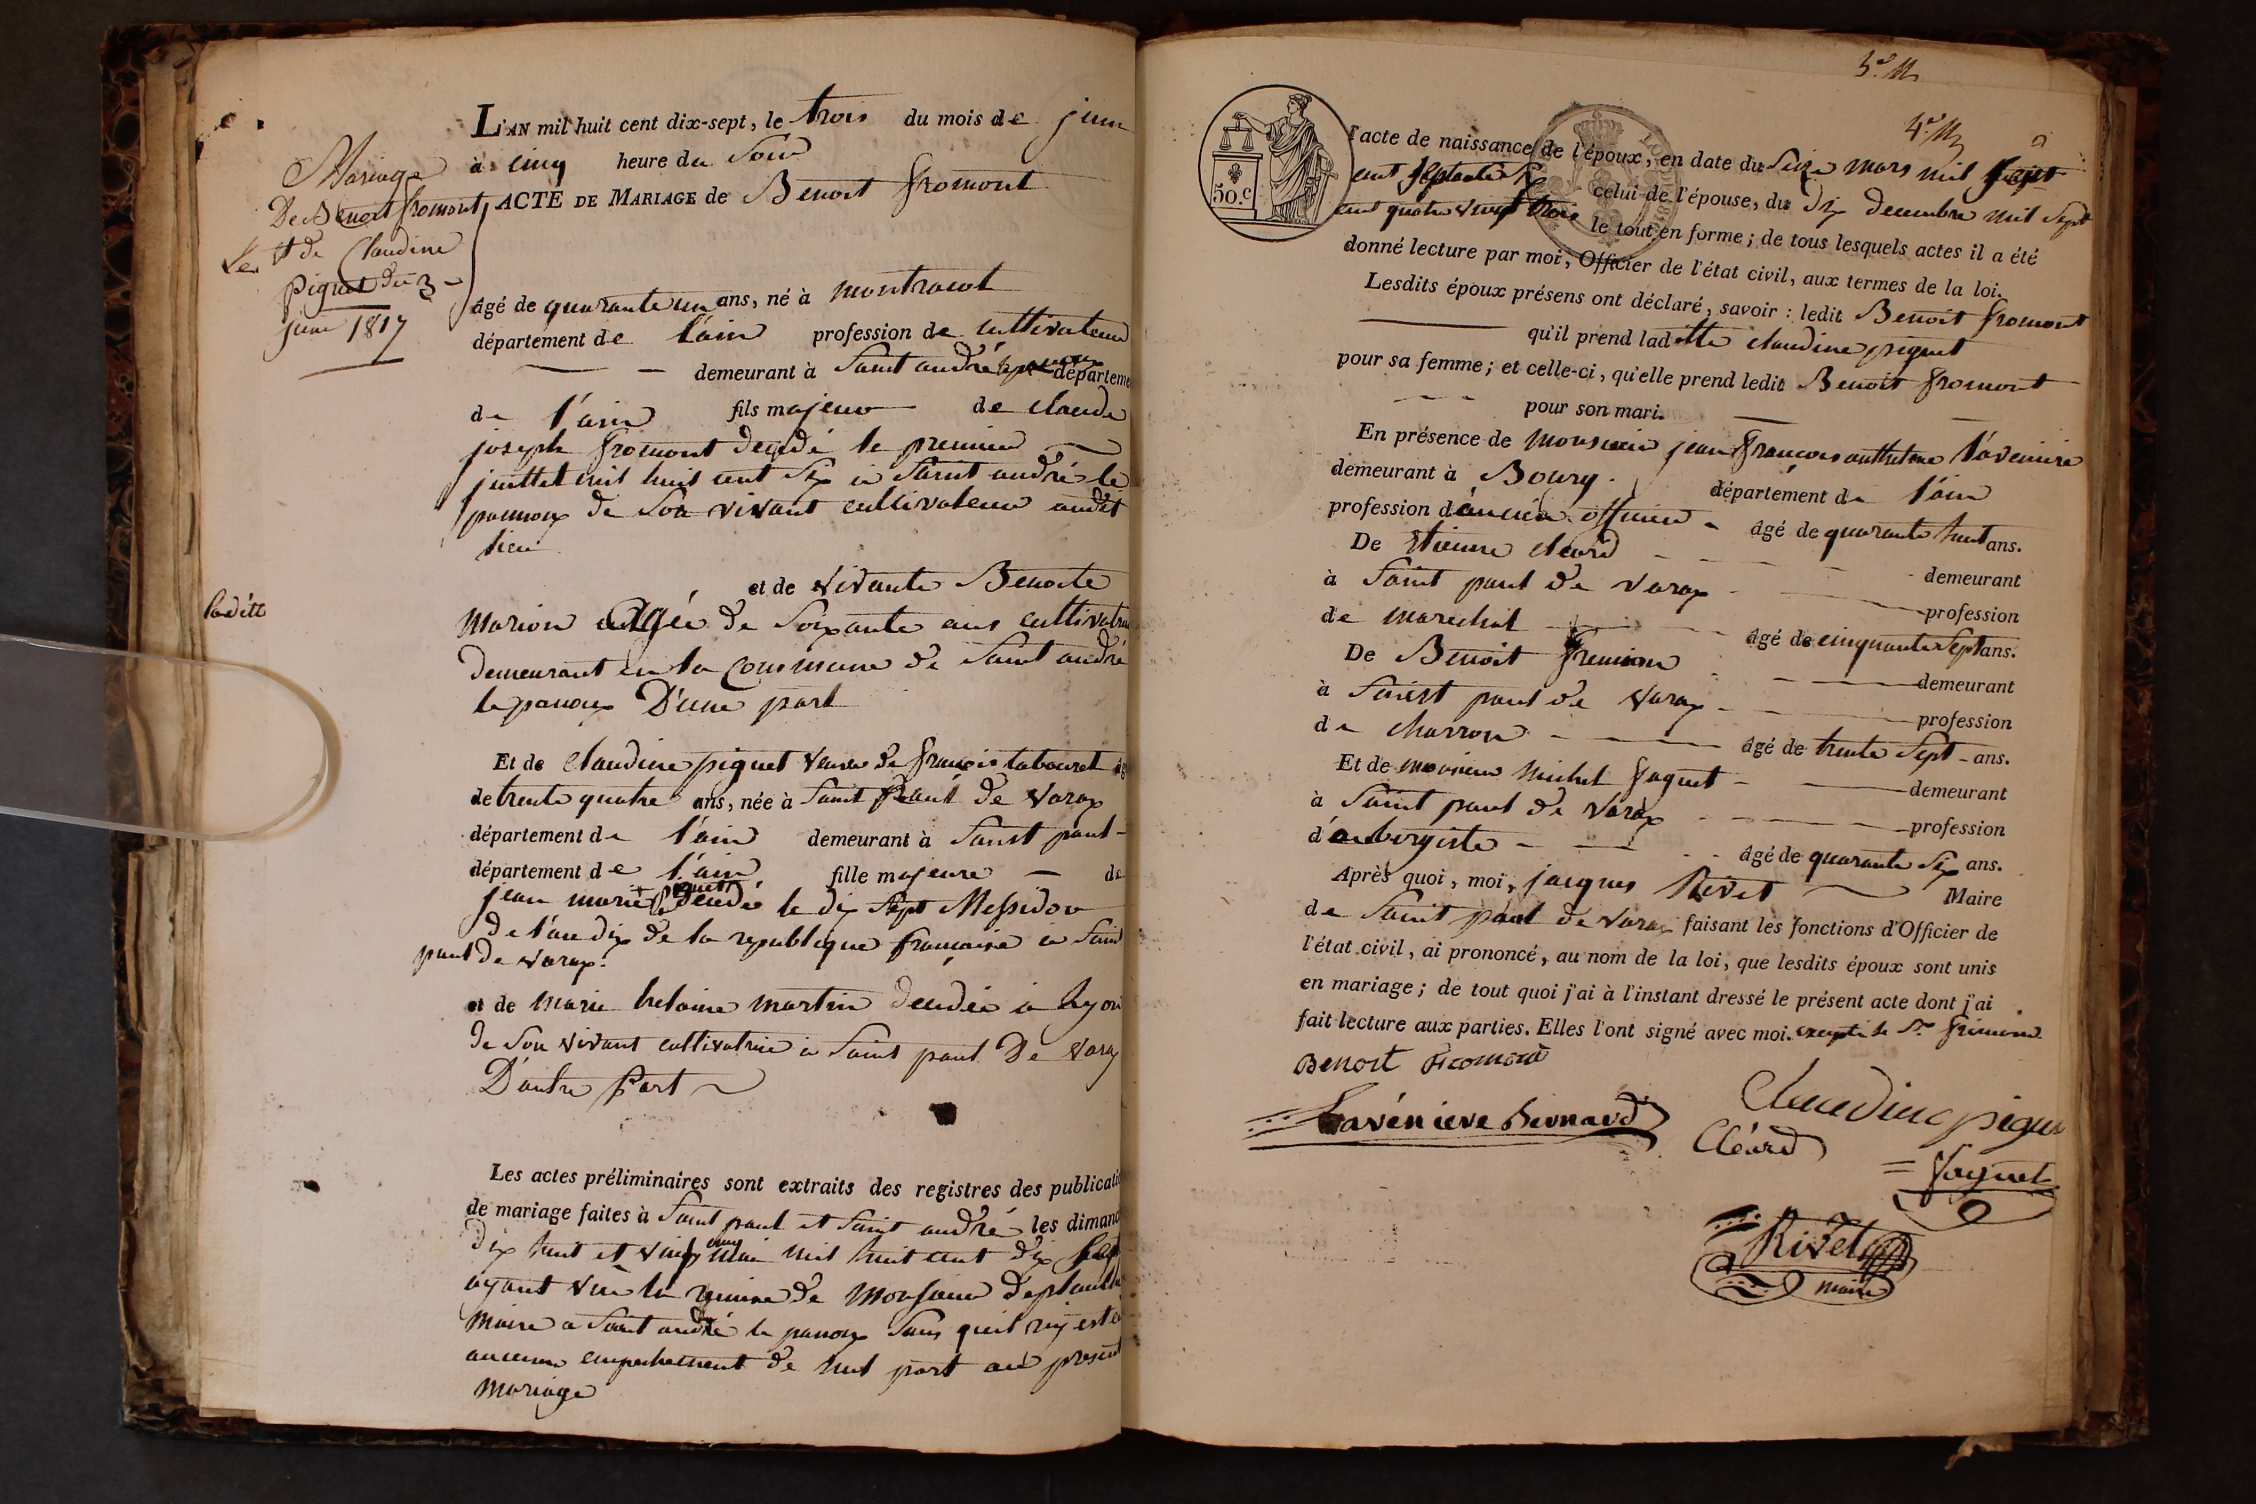 Mariage
De Benoit fromont
et de Claudine
Piguet du 3
juin 1817
L'AN mil huit cent dix-sept, le trois du mois de juin
à cinq heure du Soir
ACTE DE MARIAGE de Benoit fromont
âgé de quarante un ans, né à montracol
département de l'ain profession de cultivateur
demeurant à Saint andré le panoux départeme
de l'ain fils majeur de claude
joseph fromont decedé le premier
juillet mil huit cent Six a Saint andré le
pannoux de Son vivant cultivateur audit
lieu
et de vivante Benoite
ladite
marion agée de Soixante ans cultivatrice
demeurant en la commune de Saint andré
le panoux D'une part
Et de claudine piguet veuve de françois tabouret ag
de trente quatre ans, née à Saint paul de varax
département de l'ain demeurant à Saint paul
département de l'ain fille majeure de
jean marie piguet decedé le dix Sept Messidor
de l'an dix de la republique francaise a Saint
paul de varax.
et de marie helaine martin decedée a Lyon
de Son vivant cultivatrice a Saint paul De varax
D'autre Part
Les actes préliminaires sont extraits des registres des publicati
de mariage faites à Saint paul et Saint andré les dimanc
dix huit et vingt cinq mai mil huit cent dix Sept
ayant vu la remise de monsieur
maire a Saint andré le panoux Sans quil
aucun empechement de nul part au présent
mariage
5.e M
4.e M
50.c
l'acte de naissance de l'époux, en date du Seize mars mil Sept
cent Septante Six celui de l'épouse, du dix decembre mil Sept
cent quatre vingt trois le tout en forme; de tous lesquels actes il a été
donné lecture par moi, Officier de l'état civil, aux termes de la loi.
Lesdits époux présens ont déclaré, savoir : ledit Benoit fromont
qu'il prend ladite claudine piguet
pour sa femme; et celle-ci, qu'elle prend ledit Benoit fromont
pour son mari.
En présence de monsieur jean françois anthelme Lavéniere
demeurant à Bourg. département de l'ain
profession d'ancien officier âgé de quarante huit ans.
De Etienne cléard demeurant
à Saint paul de varax profession
de marechal âgé de cinquante Sept ans.
De Benoit fremion demeurant
à Saint paul de varax profession
de charron âgé de trente Sept ans.
Et de monsieur michel faguet demeurant
à Saint paul de varax profession
d'aubergiste âgé de quarante Six ans.
Après quoi, moi, jacques Rivet Maire
de Saint paul de varax faisant les fonctions d'Officier de
l'état civil, ai prononcé, au nom de la loi, que lesdits époux sont unis
en mariage; de tout quoi j'ai à l'instant dressé le présent acte dont j'ai
fait lecture aux parties. Elles l'ont signé avec moi. excepté le Sr fremion
Benoit fromont
Claudine pigue
Lavéniere Bernard
Cléard
faguet
Rivet
maire